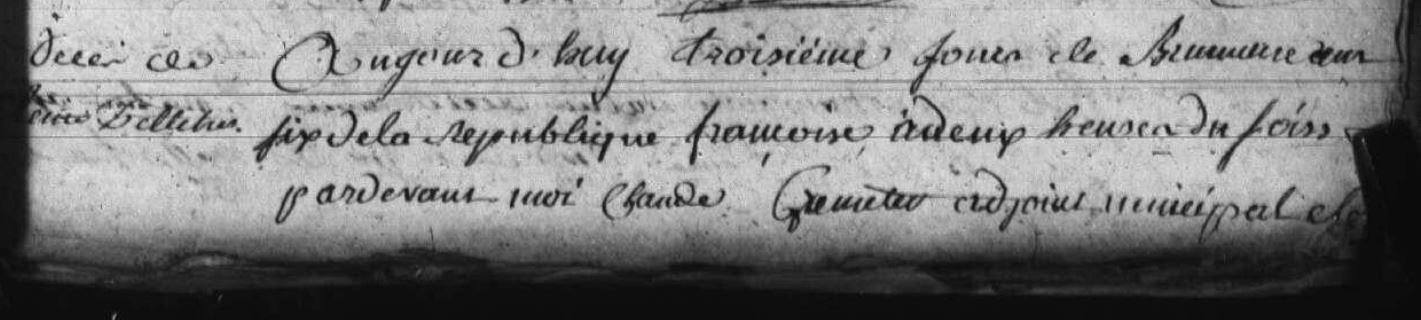 Decès de Aujourd'huy troisiéme jours de Brumaire ans
six de la republique francoise, à deux heures du soirs
pardevant moi Claude adjoint municipal de